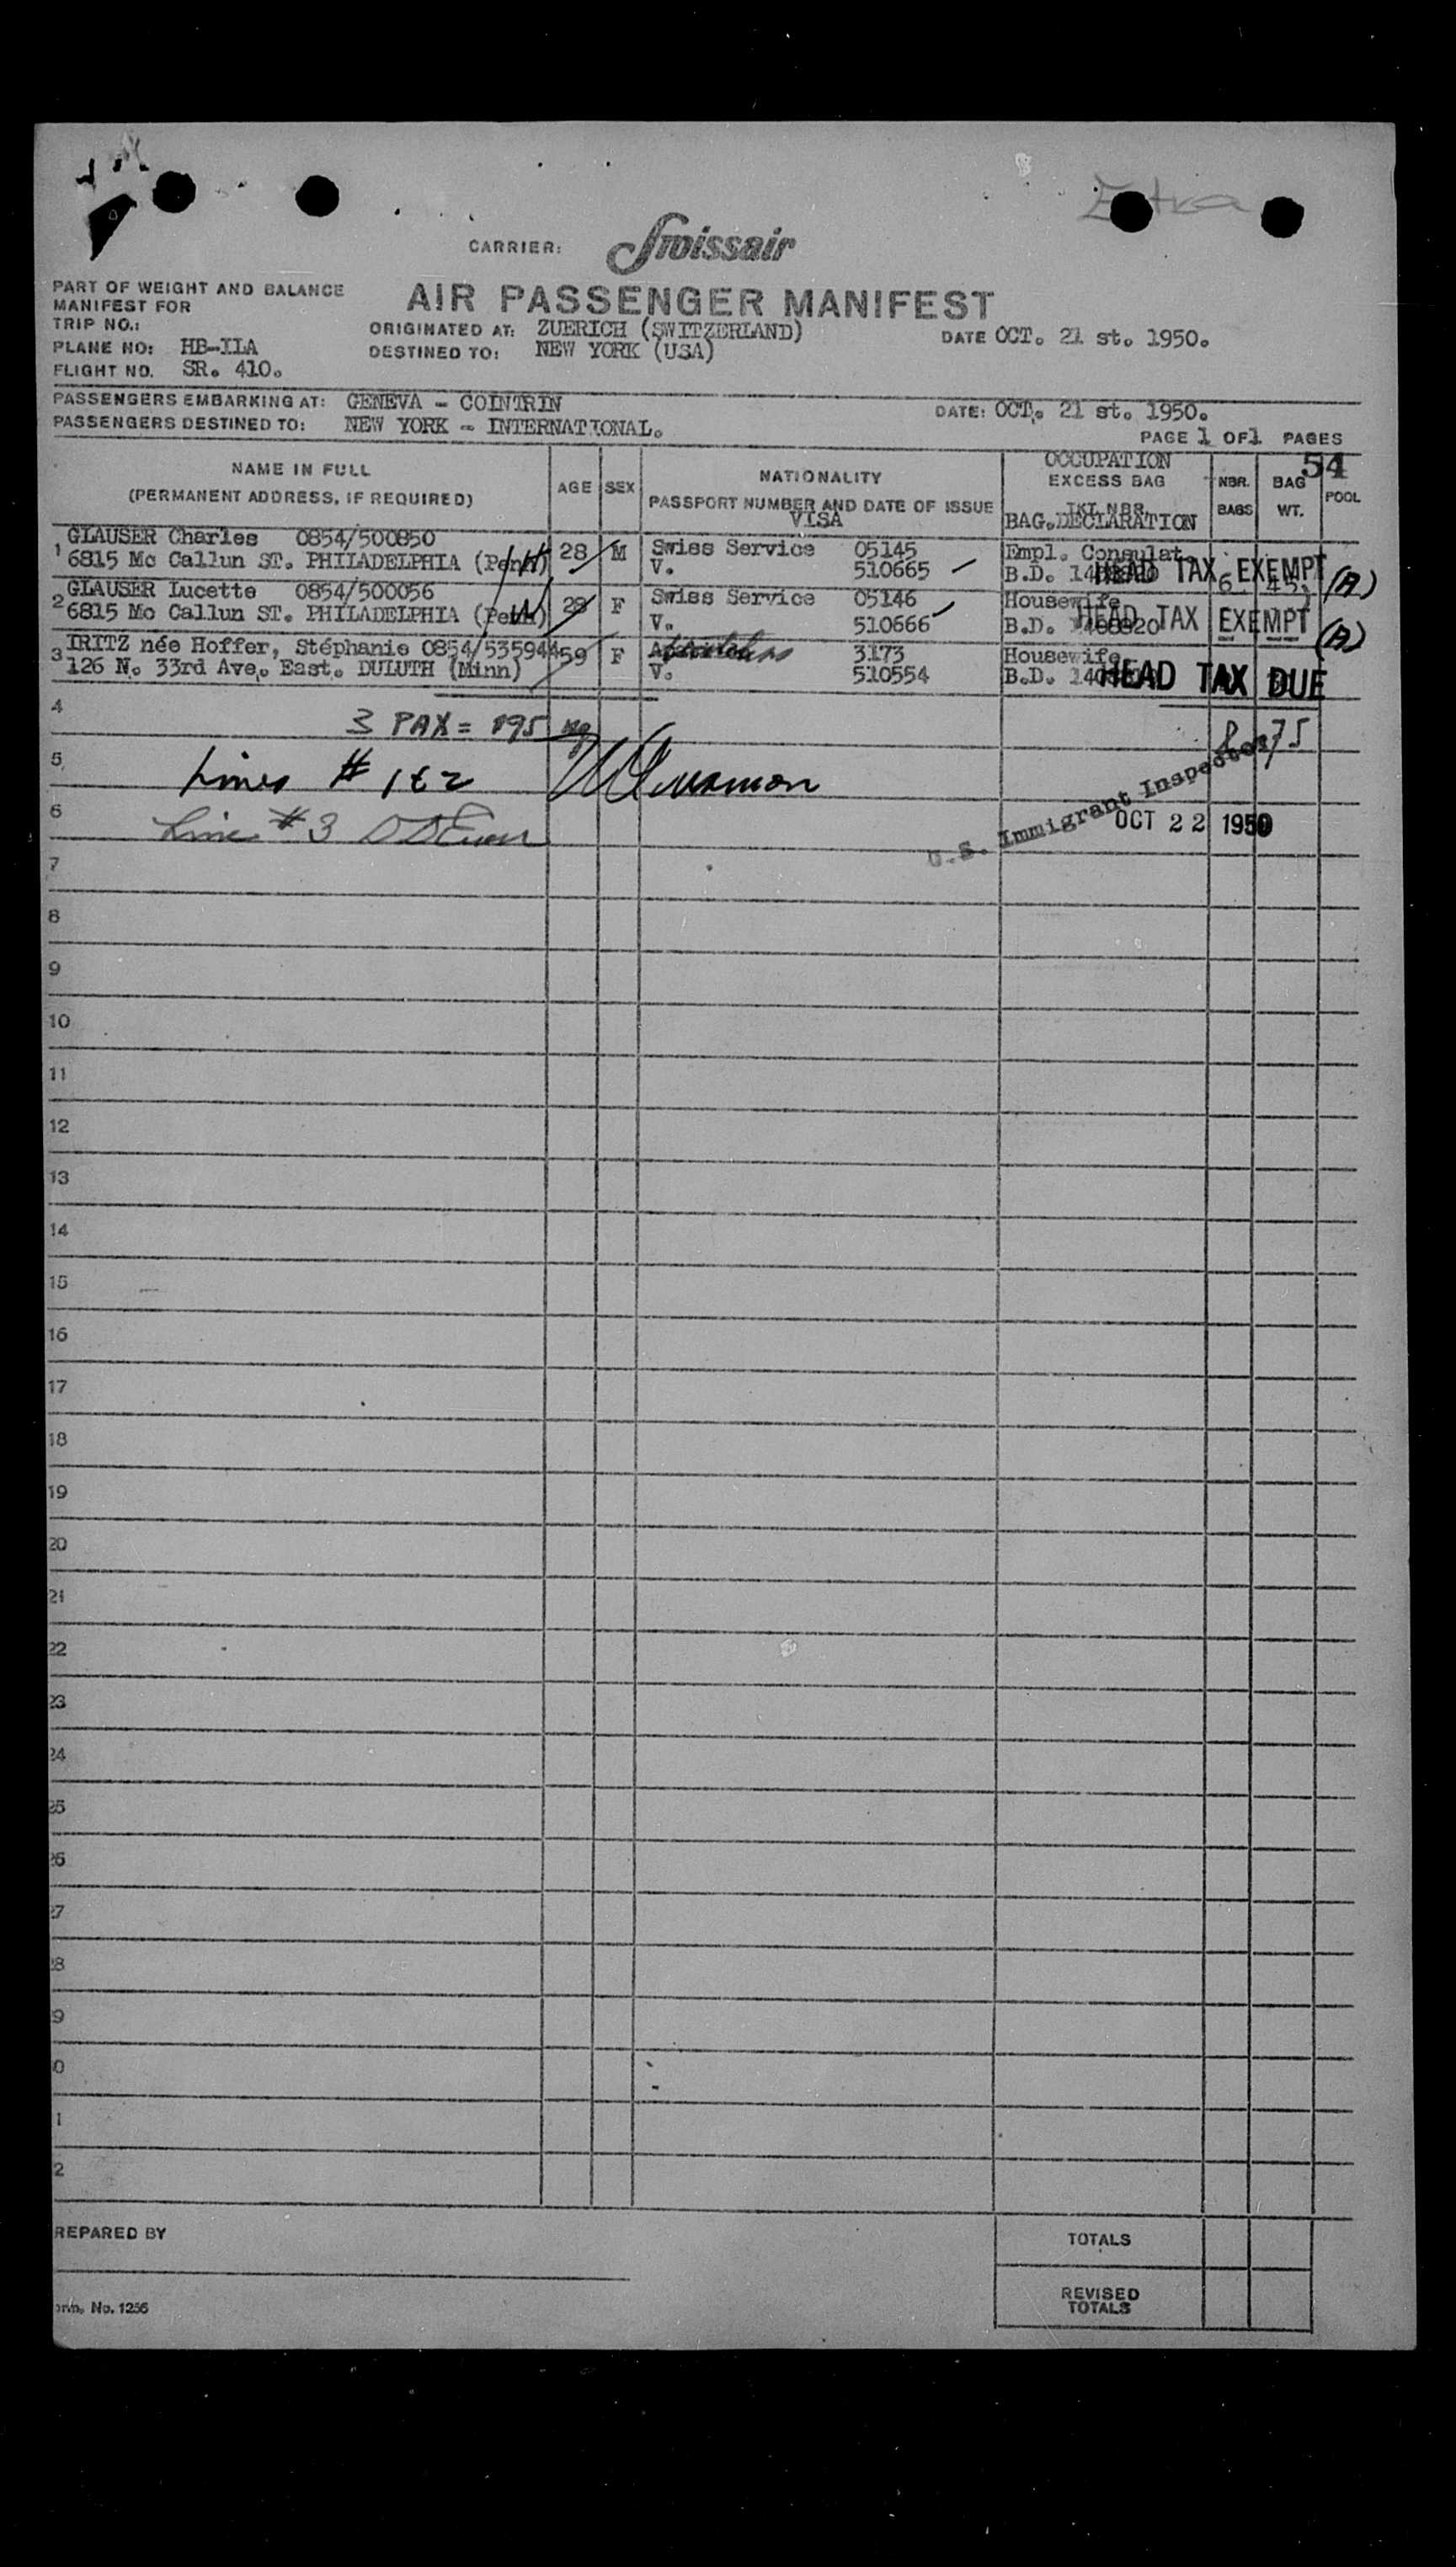 Extra
CARRIER: Swissair
PART OF WEIGHT AND BALANCE
MANIFEST FOR
AIR PASSENGER MANIFEST
TRIP NO.:
ORIGINATED AT: ZUERICH (SWITZERLAND)
DATE OCT. 21 st. 1950.
PLANE NO: HB-ILA
DESTINED TO: NEW YORK (USA)
FLIGHT NO. SR. 410.
PASSENGERS EMBARKING AT: GENEVA - COINTRIN
DATE: OCT. 21 st. 1950.
PASSENGERS DESTINED TO: NEW YORK - INTERNATIONAL.
PAGE 1 OF 1 PAGES
54
NAME IN FULL
(PERMANENT ADDRESS, IF REQUIRED)
AGE
SEX
NATIONALITY
PASSPORT NUMBER AND DATE OF ISSUE
VISA
OCCUPATION
EXCESS BAG
TKT NBR.
BAG. DECLARATION
NBR.
BAGS
BAG
WT.
POOL
1 GLAUSER Charles 0854/500850 28 M Swiss Service 05145 Empl. Consulat
6815 Mc Callun ST. PHILADELPHIA (Penn) V. 510665 B.D. HEAD TAX EXEMPT 6 (A)
2 GLAUSER Lucette 0854/500056 28 F Swiss Service 05146 Housewife
6815 Mc Callun ST. PHILADELPHIA V. 510666 B.D. HEAD TAX EXEMPT (A)
3 IRITZ née Hoffer, Stéphanie 0854/535944 59 F 3173 Housewife
126 N. 33rd Ave. East. DULUTH (Minn) V. 510554 B.D. HEAD TAX DUE
4 3 PAX = 195 kg
8 75
5 Lines # 1 & 2
U.S. Immigrant Inspector
6 Line #3
OCT 22 1950
7
8
9
10
11
12
13
14
15
16
17
18
19
20
21
22
23
24
25
26
27
28
29
0
1
2
REPARED BY
TOTALS
REVISED
TOTALS
orm. No. 1256